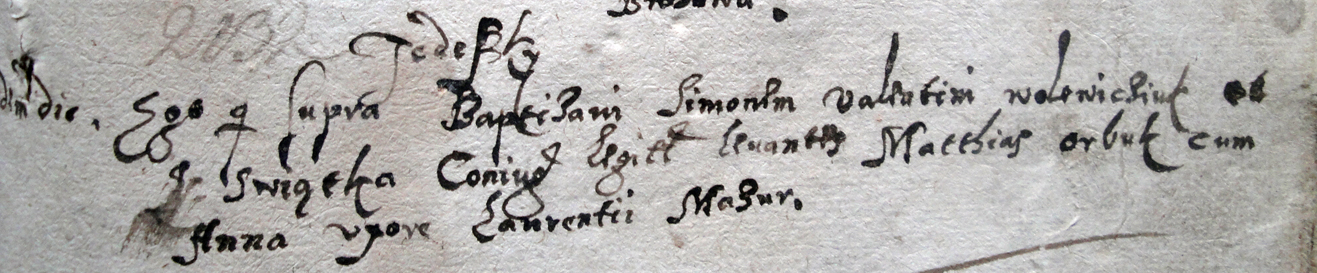 Tedesky
die, Ego q supra Baptizavi Simonem Valentini wolewicziuk et
Swiętka Coniug legitt levantes Matthias orbuk cum
Anna uxore Laurentii Mazur.